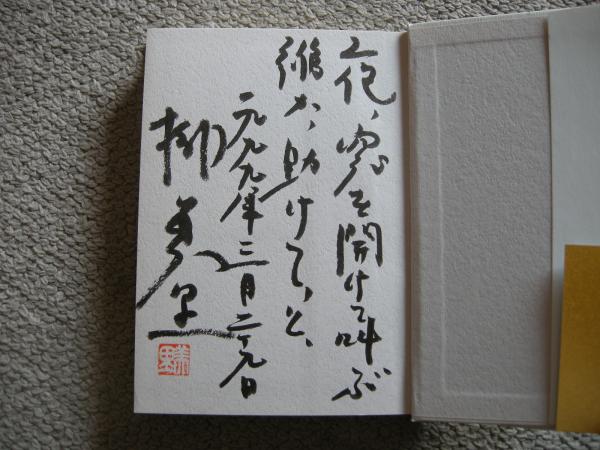 夜、窓を開けて叫ぶ
誰か、助けて、と、
一九九九年三月二十九日
柳美里
美里